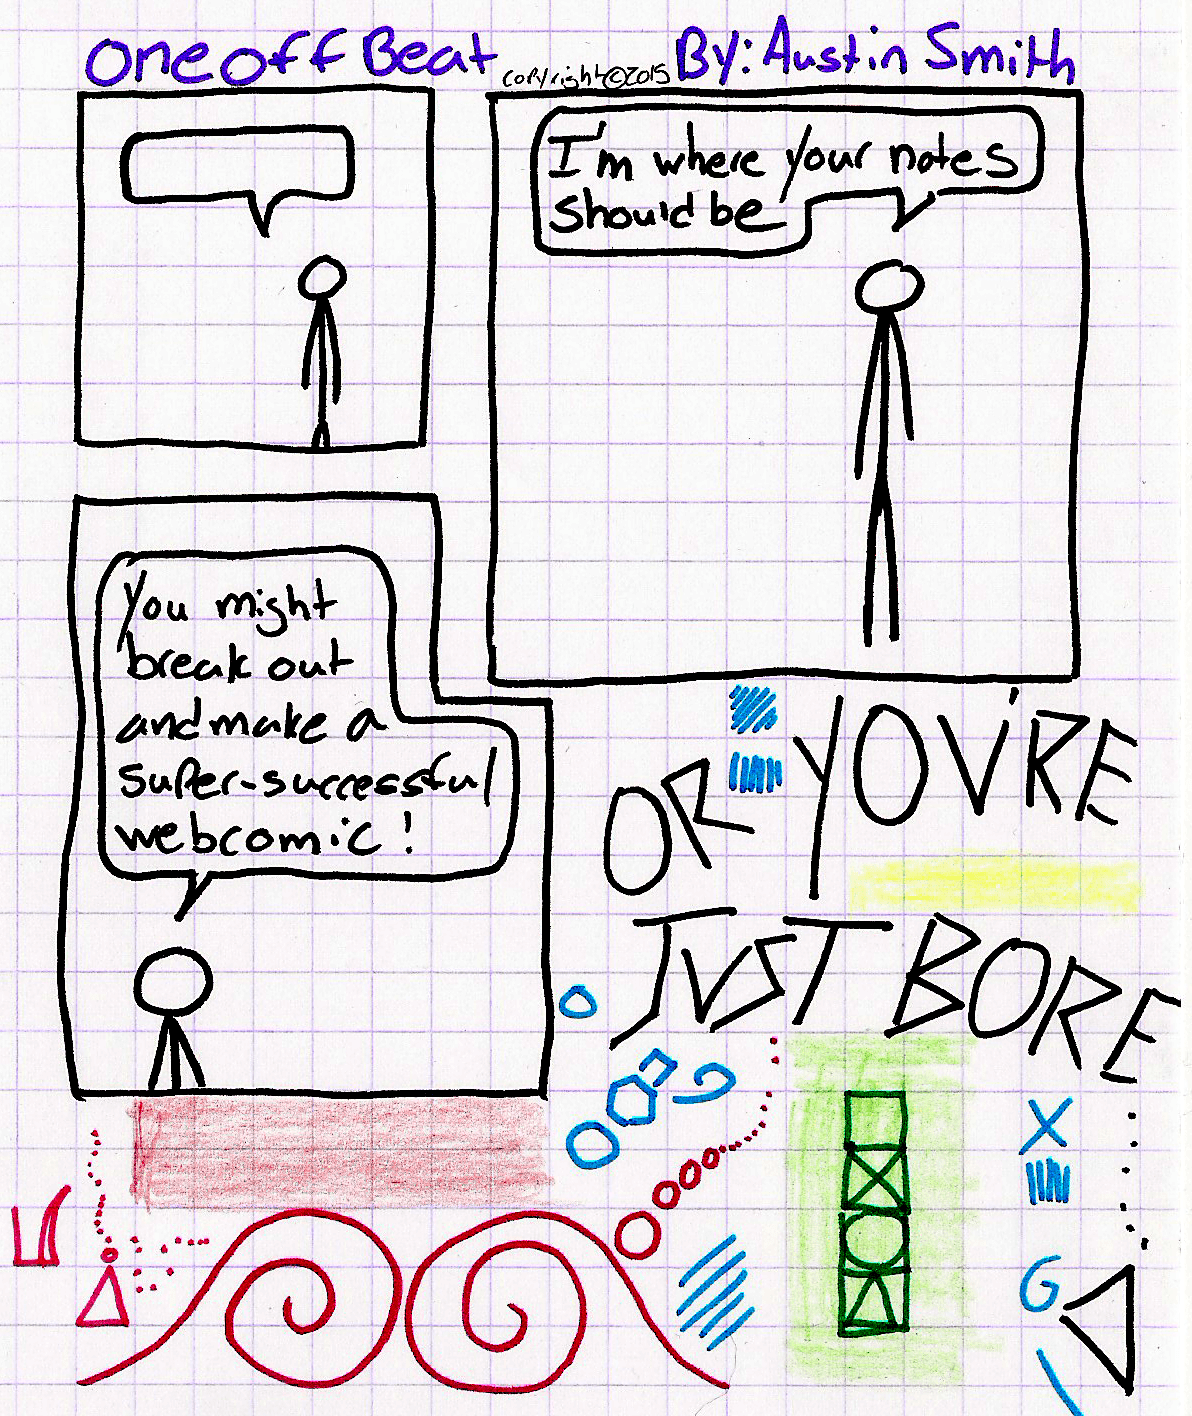 One Off Beat copyright©2015 By: Austin Smith
I'm where your notes
should be
You might
break out
and make a
super-successful
webcomic!
OR YOU'RE
JUST BORE